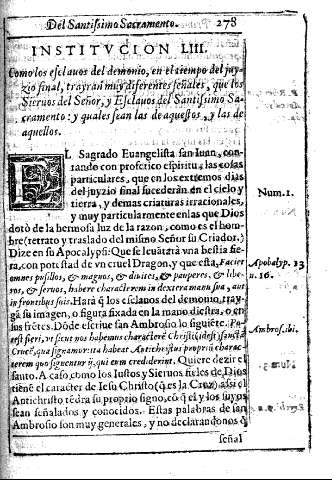 Del Santissimo Sacramento. 278
INSTITVCION LIII.
Como los esclauos del demonio, en el tiempo del juy-
zio final, trayran muy diferentes señales, que los
Sieruos del Señor, y Esclauos del Santissimo Sa-
cramento: y quales sean las de aquestos, y las de
aquellos.
EL Sagrado Euangelista san Iuan, con-
tando con profetico espiritu, las cosas
particulares, que en los extremos dias
del juyzio final sucederàn en el cielo y
tierra, y demas criaturas irracionales,
y muy particularmente en las que Dios
Num. 1.
dotò de la hermosa luz de la razon, como es el hom-
bre (retrato y traslado del mismo Señor su Criador.)
Dize en su Apocalypsi: Que se leuatarà vna bestia fie-
ra, con potestad de vn cruel Dragon, y que esta, Faciet
Apocalyp. 13
omnes pusillos, & magnos, & diuites, & pauperes, & libe-
n. 16.
ros, & seruos, habere characterem in dextera manu sua, aut
in frontibus suis. Harà q̃ los esclauos del demonio, tray-
gã su imagen, o figura fixada en la mano diestra, o en
sus frẽtes. Dõde escriue san Ambrosio lo siguiẽte. Po-
Ambros. ibi.
est fieri, vt sicut nos habemus characterẽ Christi, idest sanctã
Crucẽ, qua signamur: ita habeat Antichristus propriũ charac-
terem quo signentur ij, qui eum crediderint. Quiere dezir el
santo. A caso, como los Iustos y Sieruos fieles de Dios
tienẽ el caracter de Iesu Christo (q̃ es la Cruz) assi el
Antichristo tẽdra su proprio signo, cõ q̃ el y los suyos
sean señalados y conocidos. Estas palabras de san
Ambrosio son muy generales, y no declarandonos q̃
señal